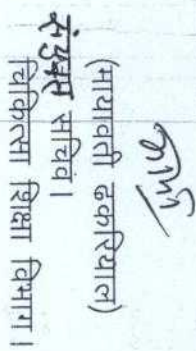 (मायावती ढकरियाल)
संयुक्त सचिव।
चिकित्सा शिक्षा विभाग।